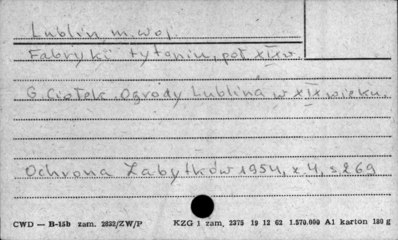 Lublin, m. woj.
Fabryki tytoniu, poł. XIX w.
G. Ciołek. Ogrody Lublina w XIX wieku.
Ochrona Zabytków 1954, z. 4, s. 269
CWD — B-15b zam. 2832/ZW/P KZG 1 zam. 2375 19 12 62 1.570.000 A1 karton 180 g